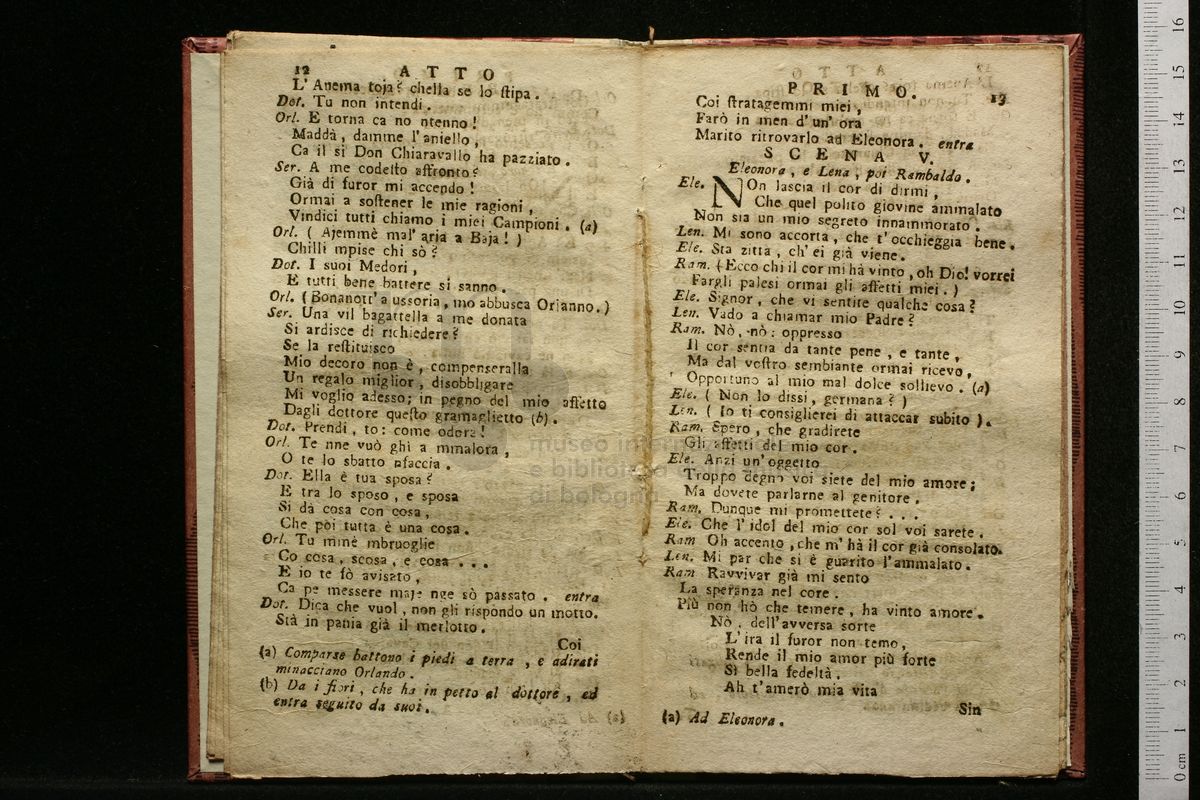 12 ATTO
L' Anema toja? chella se lo stipa.
Dot. Tu non intendi.
Orl. E torna ca no ntenno!
Maddà, damme l'aniello,
Ca il si Don Chiaravallo ha pazziato.
Ser. A me codesto affronto?
Già di furor mi accendo!
Ormai a sostener le mie ragioni,
Vindici tutti chiamo i miei Campioni. (a)
Orl. ( Ajemmè mal' aria a Baja! )
Chilli mpise chi sò?
Dot. I suoi Medori,
E tutti bene battere si sanno.
Orl. (Bonanott' a ussoria, mo abbusca Orlanno.)
Ser. Una vil bagattella a me donata
Si ardisce di richiedere?
Se la restituisco
Mio decoro non è, compenseralla
Un regalo miglior, disobbligare
Mi voglio adesso; in pegno del mio affetto
Dagli dottore questo gramaglietto (b).
Dot. Prendi, to: come odora!
Orl. Te nne vuò ghì a mmalora,
O te lo sbatto nfaccia.
Dot. Ella è tua sposa?
E tra lo sposo, e sposa
Si dà cosa con cosa,
Che poi tutta è una cosa.
Orl. Tu minè mbruoglie
Co cosa, scosa, e cosa ...
E io te fò avisato,
Ca pe messere maje nge sò passato. entra
Dot. Dica che vuol, non gli rispondo un motto.
Stà in pania già il merlotto.
Coi
(a) Comparse battono i piedi a terra, e adirati
minacciano Orlando.
(b) Da i fiori, che ha in petto al dottore, ed
entra seguito da suoi.
PRIMO. 13
Coi stratagemmi miei,
Farò in men d'un' ora
Marito ritrovarlo ad Eleonora. entra
SCENA V.
Eleonora, e Lena, poi Rambaldo.
Ele. NOn lascia il cor di dirmi,
Che quel polito giovine ammalato
Non sia un mio segreto innammorato.
Len. Mi sono accorta, che t'occhieggia bene.
Ele. Sta zitta, ch' ei già viene.
Ram. (Ecco chi il cor mi hà vinto, oh Dio! vorrei
Fargli palesi ormai gli affetti miei.)
Ele. Signor, che vi sentite qualche cosa?
Len. Vado a chiamar mio Padre?
Ram. Nò, nò: oppresso
Il cor sentia da tante pene, e tante,
Ma dal vostro sembiante ormai ricevo,
Opportuno al mio mal dolce sollievo. (a)
Ele. ( Non lo dissi, germana? )
Len. ( Io ti consiglierei di attaccar subito ).
Ram. Spero, che gradirete
Gli affetti del mio cor.
Ele. Anzi un'oggetto
Troppo degno voi siete del mio amore;
Ma dovete parlarne al genitore.
Ram. Dunque mi promettete? ...
Ele. Che l'idol del mio cor sol voi sarete.
Ram Oh accento, che m' hà il cor già consolato.
Len. Mi par che si è guarito l'ammalato.
Ram Ravvivar già mi sento
La speranza nel core.
Più non hò che temere, ha vinto amore.
Nò, dell'avversa sorte
L'ira il furor non temo,
Rende il mio amor più forte
Sì bella fedeltà.
Ah t'amerò mia vita
Sin
(a) Ad Eleonora.
museo internazionale
e biblioteca della musica
di bologna